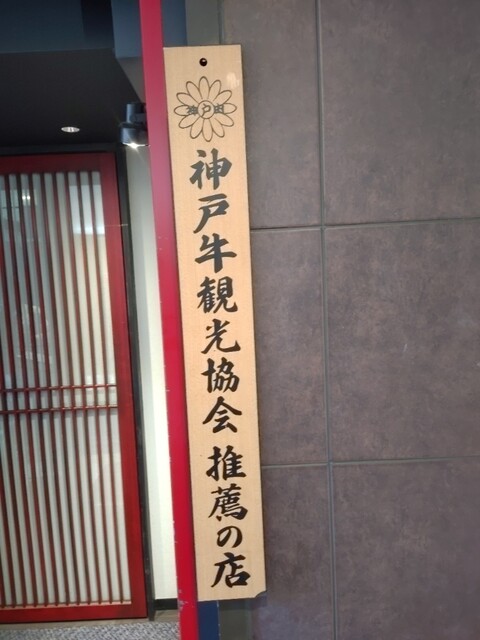 神戸牛観光協会 推薦の店